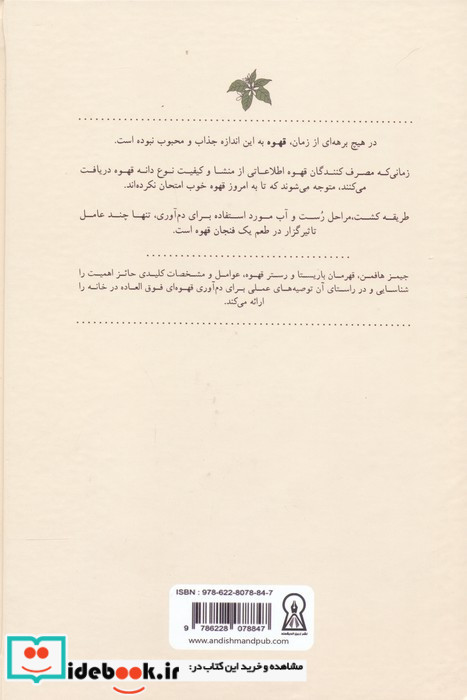 در هیچ برهه‌ای از زمان، قهوه به این اندازه جذاب و محبوب نبوده است.
زمانی‌که مصرف کنندگان قهوه اطلاعاتی از منشا و کیفیت نوع دانه قهوه دریافت
می‌کنند، متوجه می‌شوند که تا به امروز قهوه خوب امتحان نکرده‌اند.
طریقه کشت،مراحل رُست و آب مورد استفاده برای دم‌آوری، تنها چند عامل
تاثیرگزار در طعم یک فنجان قهوه است.
جیمز هافمن، قهرمان باریستا و رستر قهوه، عوامل و مشخصات کلیدی حائز اهمیت را
شناسایی و در راستای آن توصیه‌های عملی برای دم‌آوری قهوه‌ای فوق العاده در خانه را
ارائه می‌کند.
ISBN : 978-622-8078-84-7
9 786228 078847
www.andishmandpub.com
idebook.ir
مشاهده و خرید این کتاب در: